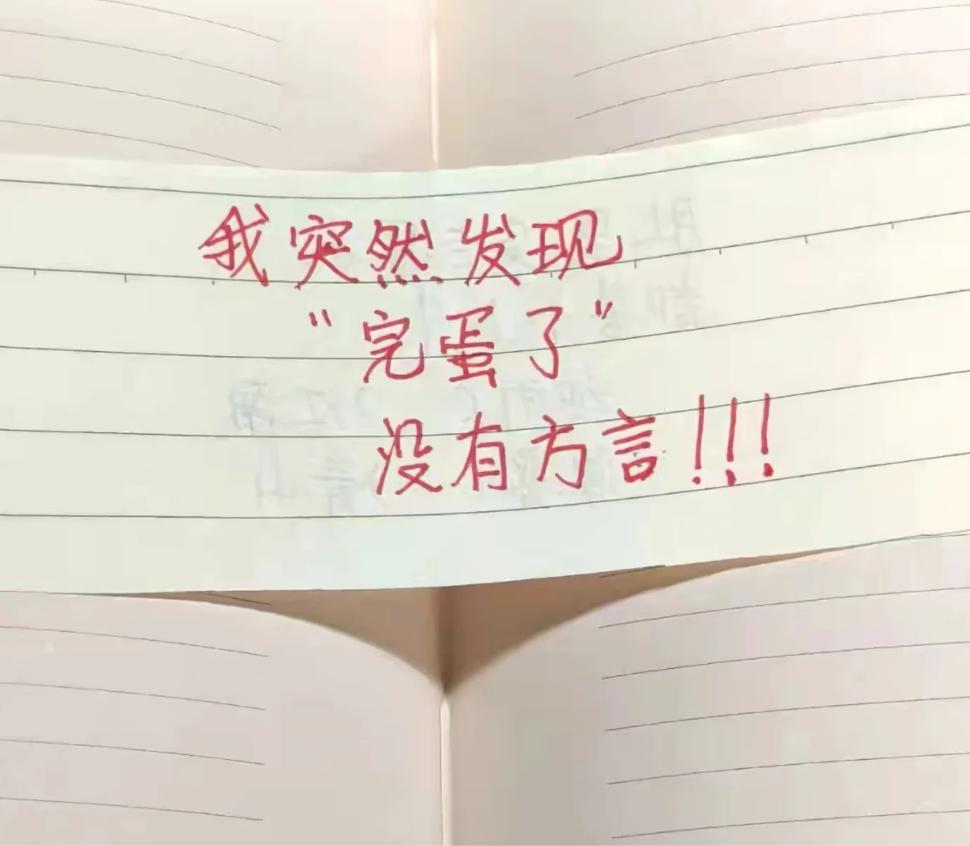 我突然发现
"完蛋了"
没有方言!!!